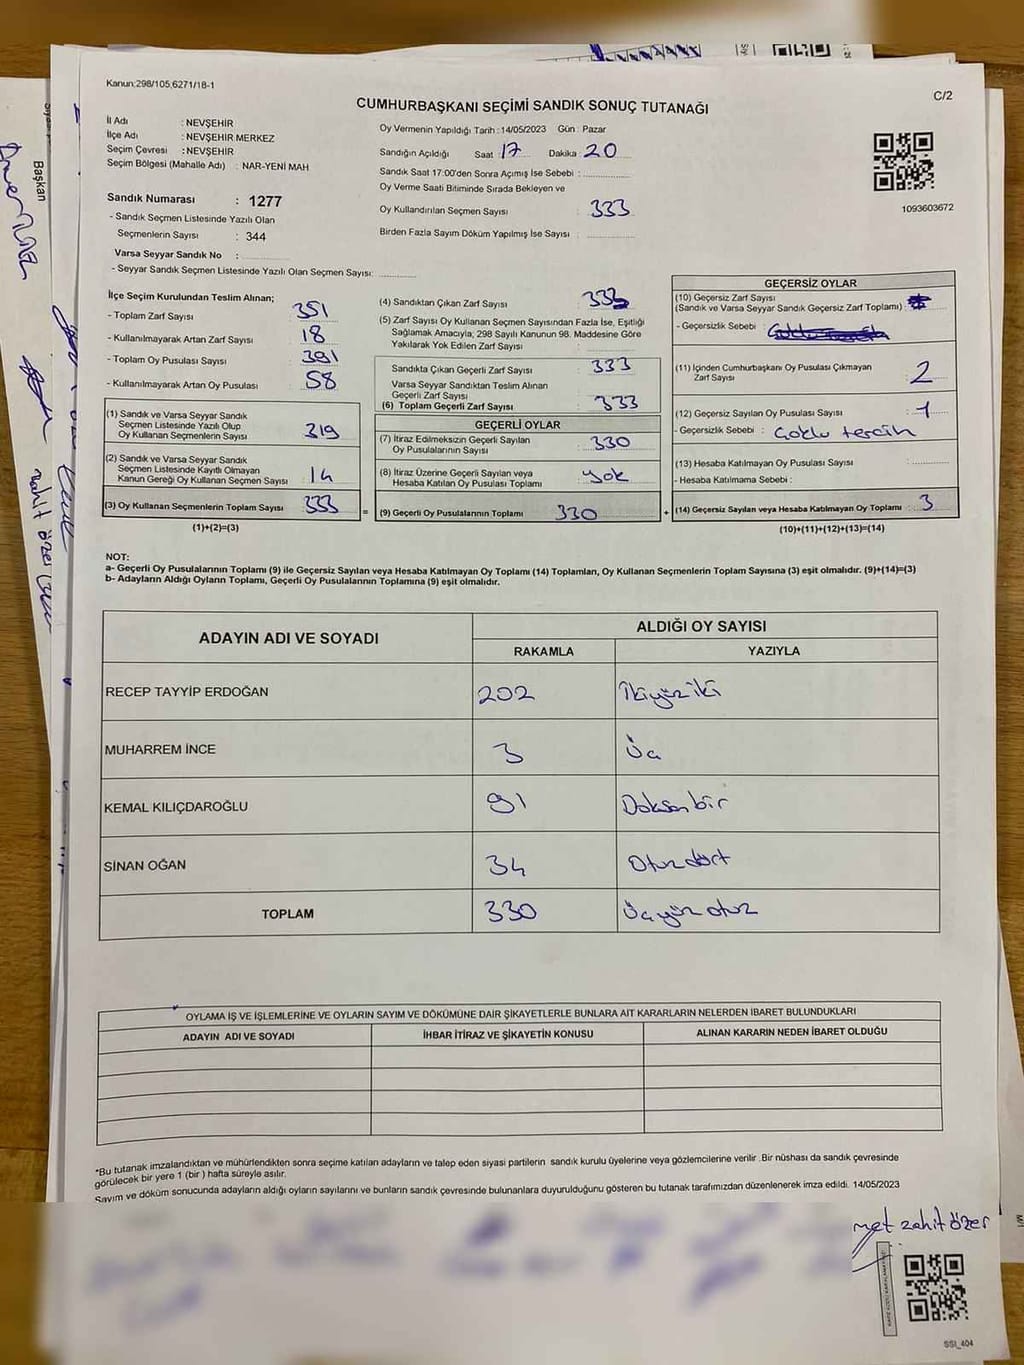 Kanun:298/105,6271/18-1
C/2
CUMHURBAŞKANI SEÇİMİ SANDIK SONUÇ TUTANAĞI
İl Adı : NEVŞEHİR
İlçe Adı : NEVŞEHİR MERKEZ
Seçim Çevresi : NEVŞEHİR
Seçim Bölgesi (Mahalle Adı) : NAR-YENİ MAH
Sandık Numarası : 1277
- Sandık Seçmen Listesinde Yazılı Olan
Seçmenlerin Sayısı : 344
Varsa Seyyar Sandık No :
- Seyyar Sandık Seçmen Listesinde Yazılı Olan Seçmen Sayısı:
Oy Vermenin Yapıldığı Tarih : 14/05/2023 Gün : Pazar
Sandığın Açıldığı Saat 17 Dakika 20
Sandık Saat 17:00'den Sonra Açımış İse Sebebi :
Oy Verme Saati Bitiminde Sırada Bekleyen ve
Oy Kullandırılan Seçmen Sayısı : 333
Birden Fazla Sayım Döküm Yapılmış İse Sayısı :
1093603672
İlçe Seçim Kurulundan Teslim Alınan;
- Toplam Zarf Sayısı : 351
- Kullanılmayarak Artan Zarf Sayısı : 18
- Toplam Oy Pusulası Sayısı : 391
- Kullanılmayarak Artan Oy Pusulası : 58
(1) Sandık ve Varsa Seyyar Sandık
Seçmen Listesinde Yazılı Olup
Oy Kullanan Seçmenlerin Sayısı : 319
(2) Sandık ve Varsa Seyyar Sandık
Seçmen Listesinde Kayıtlı Olmayan
Kanun Gereği Oy Kullanan Seçmen Sayısı : 14
(3) Oy Kullanan Seçmenlerin Toplam Sayısı : 333
(1)+(2)=(3)
(4) Sandıktan Çıkan Zarf Sayısı : 333
(5) Zarf Sayısı Oy Kullanan Seçmen Sayısından Fazla İse, Eşitliği
Sağlamak Amacıyla; 298 Sayılı Kanunun 98. Maddesine Göre
Yakılarak Yok Edilen Zarf Sayısı :
Sandıkta Çıkan Geçerli Zarf Sayısı : 333
Varsa Seyyar Sandıktan Teslim Alınan
Geçerli Zarf Sayısı :
(6) Toplam Geçerli Zarf Sayısı : 333
GEÇERLİ OYLAR
(7) İtiraz Edilmeksizin Geçerli Sayılan
Oy Pusulalarının Sayısı : 330
(8) İtiraz Üzerine Geçerli Sayılan veya
Hesaba Katılan Oy Pusulası Toplamı : yok
= (9) Geçerli Oy Pusulalarının Toplamı 330 +
GEÇERSİZ OYLAR
(10) Geçersiz Zarf Sayısı
(Sandık ve Varsa Seyyar Sandık Geçersiz Zarf Toplamı) :
- Geçersizlik Sebebi :
(11) İçinden Cumhurbaşkanı Oy Pusulası Çıkmayan
Zarf Sayısı : 2
(12) Geçersiz Sayılan Oy Pusulası Sayısı : 1
- Geçersizlik Sebebi : Çoklu tercih
(13) Hesaba Katılmayan Oy Pusulası Sayısı :
- Hesaba Katılmama Sebebi :
(14) Geçersiz Sayılan veya Hesaba Katılmayan Oy Toplamı : 3
(10)+(11)+(12)+(13)=(14)
NOT:
a- Geçerli Oy Pusulalarının Toplamı (9) ile Geçersiz Sayılan veya Hesaba Katılmayan Oy Toplamı (14) Toplamları, Oy Kullanan Seçmenlerin Toplam Sayısına (3) eşit olmalıdır. (9)+(14)=(3)
b- Adayların Aldığı Oyların Toplamı, Geçerli Oy Pusulalarının Toplamına (9) eşit olmalıdır.
ADAYIN ADI VE SOYADI
ALDIĞI OY SAYISI
RAKAMLA YAZIYLA
RECEP TAYYİP ERDOĞAN 202 İkiyüz iki
MUHARREM İNCE 3 Üç
KEMAL KILIÇDAROĞLU 91 Doksan bir
SİNAN OĞAN 34 Otuz dört
TOPLAM 330 Üçyüz otuz
OYLAMA İŞ VE İŞLEMLERİNE VE OYLARIN SAYIM VE DÖKÜMÜNE DAİR ŞİKAYETLERLE BUNLARA AİT KARARLARIN NELERDEN İBARET BULUNDUKLARI
ADAYIN ADI VE SOYADI İHBAR İTİRAZ VE ŞİKAYETİN KONUSU ALINAN KARARIN NEDEN İBARET OLDUĞU
*Bu tutanak imzalandıktan ve mühürlendikten sonra seçime katılan adayların ve talep eden siyasi partilerin sandık kurulu üyelerine veya gözlemcilerine verilir .Bir nüshası da sandık çevresinde
görülecek bir yere 1 (bir ) hafta süreyle asılır.
Sayım ve döküm sonucunda adayların aldığı oyların sayılarını ve bunların sandık çevresinde bulunanlara duyurulduğunu gösteren bu tutanak tarafımızdan düzenlenerek imza edildi. 14/05/2023
met zahit özer
SSI_404
Başkan